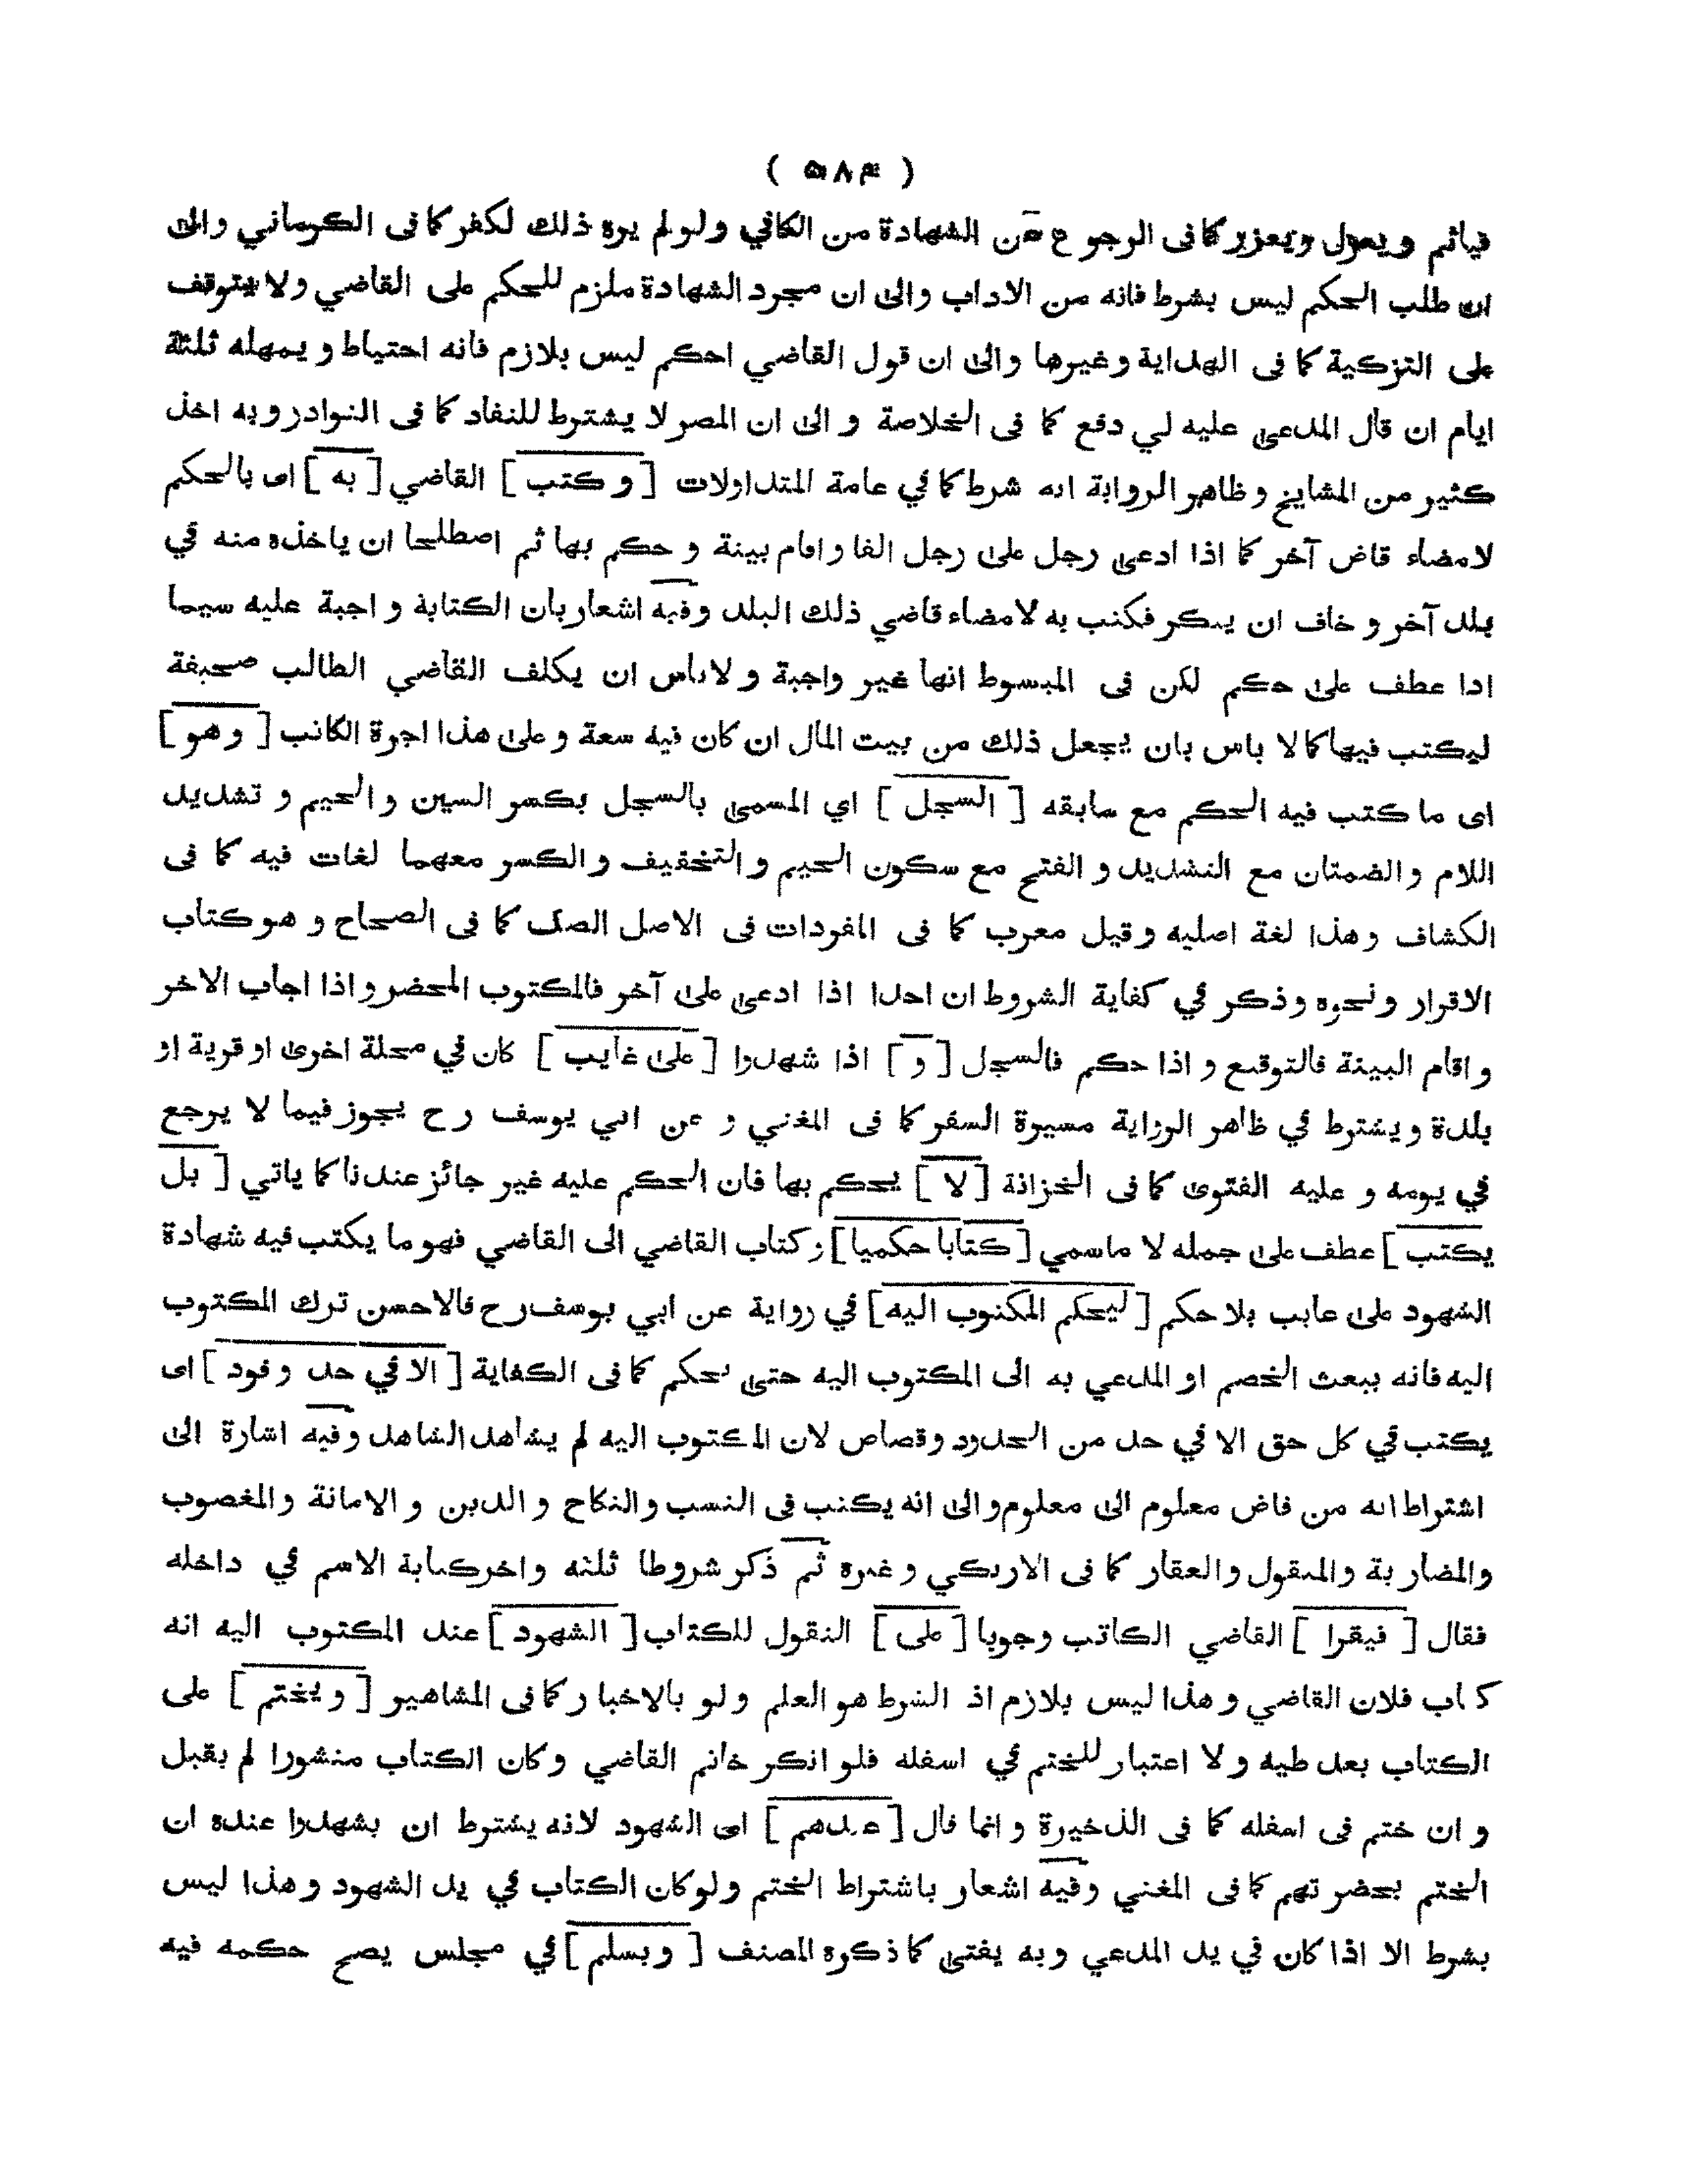 ( ۵۸۴ )
فياثم ويعزل ويعزر كما فى الرجوع عن الشهادة من الكافي ولو لم يره ذلك لكفر كما فى الكرماني والى
ان طلب الحكم ليس بشرط فانه من الاداب والى ان مجرد الشهادة ملزم للحكم على القاضي ولا يتوقف
على التزكية كما فى الهداية وغيرها والى ان قول القاضي احكم ليس بلازم فانه احتياط و يمهله ثلثة
ايام ان قال المدعى عليه لي دفع كما فى الخلاصة و الى ان المصر لا يشترط للنفاد كما فى النوادر وبه اخذ
كثير من المشايخ و ظاهر الرواية انه شرط كما في عامة المتداولات [ و كتب ] القاضي [ به ] اى بالحكم
لامضاء قاض آخر كما اذا ادعى رجل على رجل الفا و اقام بينة و حكم بها ثم اصطلحا ان ياخذه منه في
بلد آخر و خاف ان ينكر فكتب به لامضاء قاضي ذلك البلد وفيه اشعار بان الكتابة و اجبة عليه سيما
اذا عطف على حكم لكن فى المبسوط انها غير واجبة و لاباس ان يكلف القاضي الطالب صحيفة
ليكتب فيها كما لا باس بان يجعل ذلك من بيت المال ان كان فيه سعة و على هذا اجرة الكاتب [ و هو ]
اى ما كتب فيه الحكم مع سابقه [ السجل ] اي المسمى بالسجل بكسر السين و الجيم و تشديد
اللام و الضمتان مع التشديد و الفتح مع سكون الجيم و التخفيف و الكسر معهما لغات فيه كما فى
الكشاف وهذا لغة اصليه وقيل معرب كما فى المفردات فى الاصل الصك كما فى الصحاح و هو كتاب
الاقرار ونحوه وذكر في كفاية الشروط ان احدا اذا ادعى على آخر فالمكتوب المحضر و اذا اجاب الاخر
و اقام البينة فالتوقيع و اذا حكم فالسجل [ و ] اذا شهدوا [ على غايب ] كان في محلة اخرى او قرية او
بلدة ويشترط في ظاهر الرواية مسيرة السفر كما فى المغني و عن ابي يوسف رح يجوز فيما لا يرجع
في يومه و عليه الفتوى كما فى الخزانة [ لا ] يحكم بها فان الحكم عليه غير جائز عندنا كما ياتي [ بل
يكتب ] عطف على جمله لا ماسمي [ كتابا حكميا ] و كتاب القاضي الى القاضي فهو ما يكتب فيه شهادة
الشهود على غايب بلا حكم [ ليحكم المكتوب اليه ] في رواية عن ابي يوسف رح فالاحسن ترك المكتوب
اليه فانه يبعث الخصم او المدعي به الى المكتوب اليه حتى يحكم كما فى الكفاية [ الا في حد و قود ] اى
يكتب في كل حق الا في حد من الحدود وقصاص لان المكتوب اليه لم يشاهد الشاهد وفيه اشارة الى
اشتراط انه من قاض معلوم الى معلوم و الى انه يكتب فى النسب والنكاح و الدين و الامانة والمغصوب
والمضاربة والمنقول والعقار كما فى و غيره ثم ذكر شروطا ثلثه واخر كتابة الاسم في داخله
فقال [ فيقرا ] القاضي الكاتب وجوبا [ على ] النقول للكتاب [ الشهود ] عند المكتوب اليه انه
كتاب فلان القاضي و هذا ليس بلازم اذ الشرط هو العلم ولو بالاخبار كما فى المشاهير [ و يختم ] على
الكتاب بعد طيه و لا اعتبار للختم في اسفله فلو انكر خاتم القاضي وكان الكتاب منشورا لم يقبل
و ان ختم فى اسفله كما فى الذخيرة و انما قال [ عندهم ] اى الشهود لانه يشترط ان يشهدوا عنده ان
الختم بحضرتهم كما فى المغني وفيه اشعار باشتراط الختم ولو كان الكتاب في يد الشهود وهذا ليس
بشرط الا اذا كان في يد المدعي وبه يفتى كما ذكره المصنف [ ويسلم ] في مجلس يصح حكمه فيه